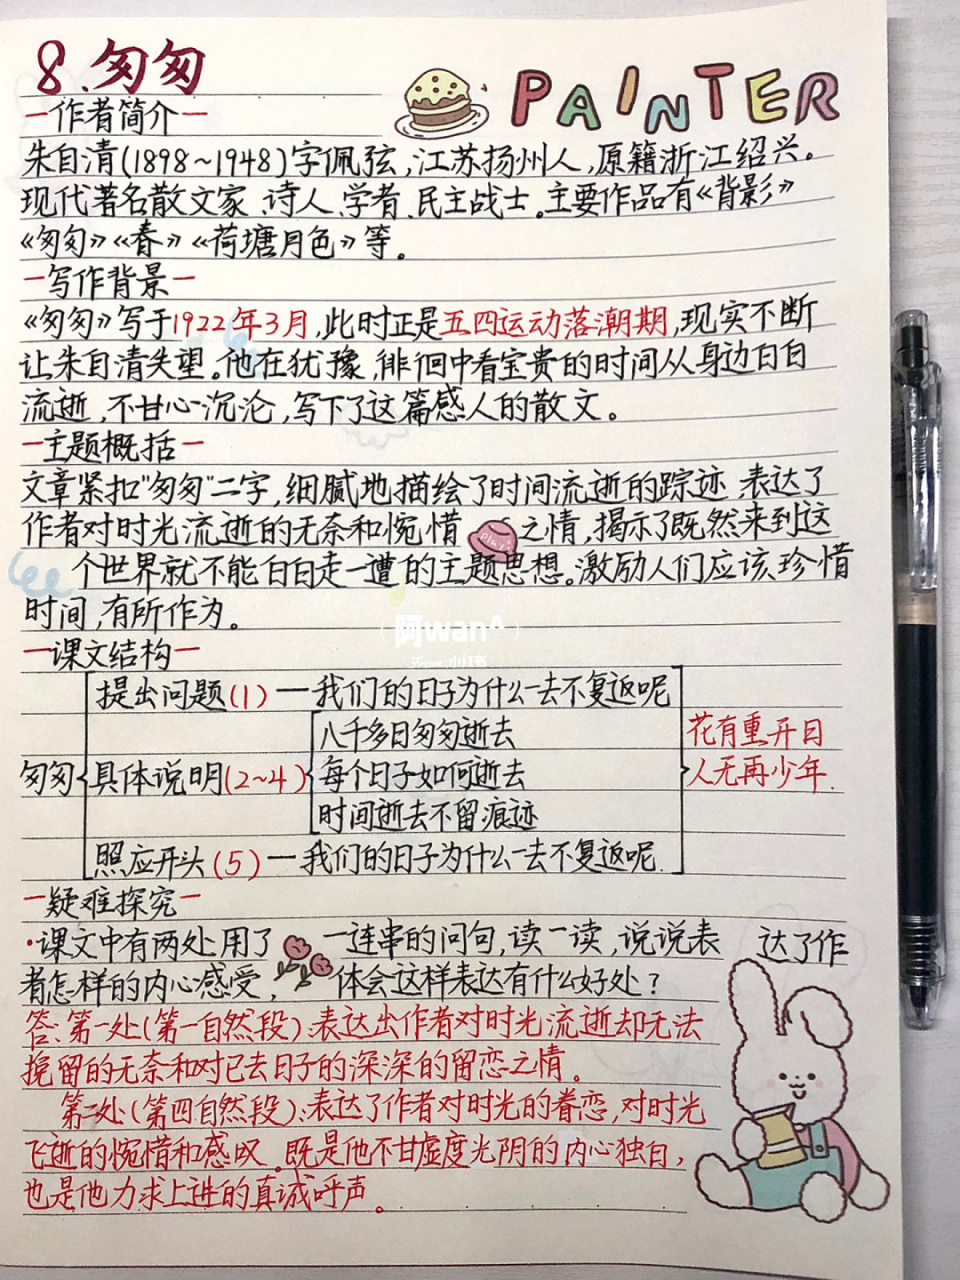 8.匆匆
PAINTER
一作者简介一
朱自清(1898~1948)字佩弦,江苏扬州人,原籍浙江绍兴。
现代著名散文家、诗人、学者、民主战士。主要作品有《背影》
《匆匆》《春》《荷塘月色》等。
一写作背景一
《匆匆》写于1922年3月,此时正是五四运动落潮期,现实不断
让朱自清失望。他在犹豫,徘徊中看宝贵的时间从身边白白
流逝,不甘心沉沦,写下了这篇感人的散文。
一主题概括一
文章紧扣"匆匆"二字,细腻地描绘了时间流逝的踪迹,表达了
作者对时光流逝的无奈和惋惜之情,揭示了既然来到这
play
个世界就不能白白走一遭的主题思想。激励人们应该珍惜
时间,有所作为。
阿wan^
一课文结构一
提出问题(1)一我们的日子为什么一去不复返呢
八千多日匆匆逝去
花有重开日
匆匆 具体说明(2~4) 每个日子如何逝去
人无再少年.
时间逝去不留痕迹
照应开头(5)一我们的日子为什么一去不复返呢.
一疑难探究一
·课文中有两处用了一连串的问句,读一读,说说表达了作
者怎样的内心感受,体会这样表达有什么好处?
答:第一处(第一自然段):表达出作者对时光流逝却无法
挽留的无奈和对已去日子的深深的留恋之情。
第二处(第四自然段):表达了作者对时光的眷恋,对时光
飞逝的惋惜和感叹。既是他不甘虚度光阴的内心独白,
也是他力求上进的真诚呼声。